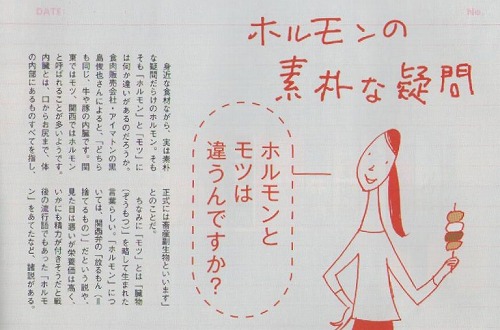 DATE
No.
ホルモンの
素朴な疑問
ホルモンと
モツは
違うんですか？
身近な食材ながら、実は素朴
な疑問だらけのホルモン。そも
そも「ホルモン」と「モツ」に
は何か違いがあるのだろうか。
食肉販売会社・の黒
島俊也さんによると、「どちら
も同じ、牛や豚の内臓です。関
東ではモツ、関西ではホルモン
と呼ばれることが多いようです。
内臓とは、口からお尻まで、体
の内部にあるものすべてを指し、
正式には畜産副生物といいます」
とのことだ。
ちなみに「モツ」とは「臓物
（ぞうもつ）」を略して生まれた
言葉らしい。「ホルモン」につ
いては、関西弁の「放るもん（＝
捨てるもの）」だという説や、
見た目は悪いが栄養価は高く、
いかにも精力が付きそうだと戦
後の流行語でもあった「ホルモ
ン」をあてたなど、諸説がある。